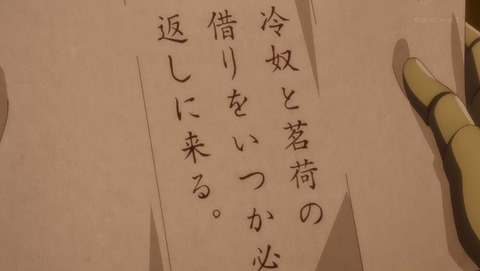 冷奴と茗荷の
借りをいつか必
返しに来る。